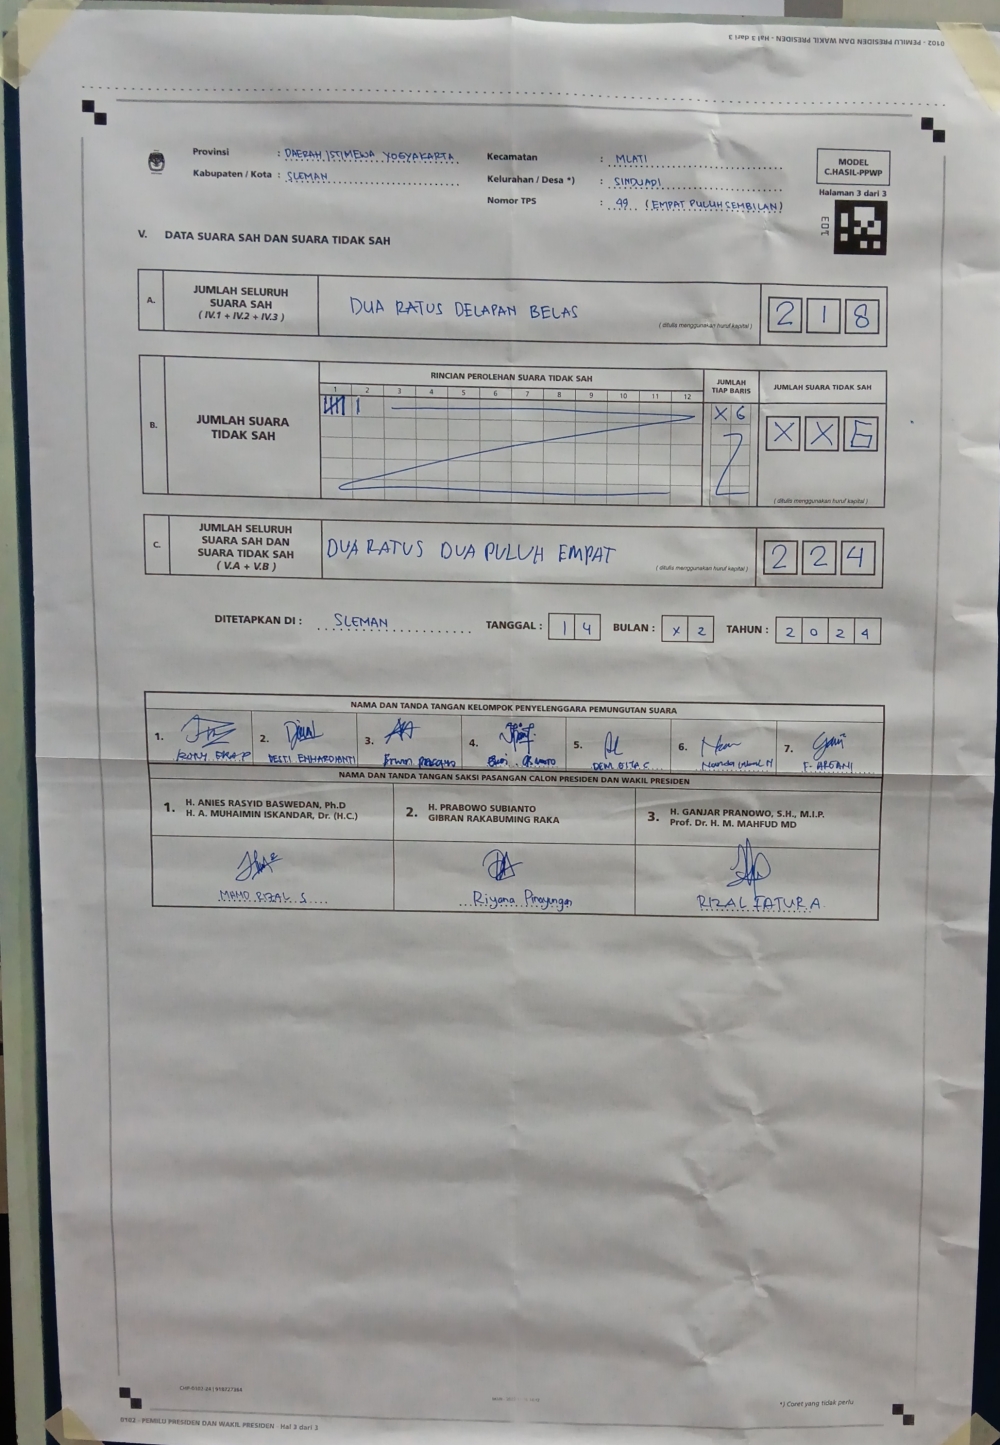 0102 - PEMILU PRESIDEN DAN WAKIL PRESIDEN - Hal 3 dari 3
Provinsi : DAERAH ISTIMEWA YOGYAKARTA
Kabupaten / Kota : SLEMAN
Kecamatan : MLATI
Kelurahan / Desa *) : SINDUADI
Nomor TPS : 49 (EMPAT PULUH SEMBILAN)
MODEL
C.HASIL-PPWP
Halaman 3 dari 3
V. DATA SUARA SAH DAN SUARA TIDAK SAH
A. JUMLAH SELURUH
SUARA SAH
( IV.1 + IV.2 + IV.3 )
DUA RATUS DELAPAN BELAS
( ditulis menggunakan huruf kapital )
2 1 8
B. JUMLAH SUARA
TIDAK SAH
RINCIAN PEROLEHAN SUARA TIDAK SAH
1 2 3 4 5 6 7 8 9 10 11 12
JUMLAH
TIAP BARIS
X 6
JUMLAH SUARA TIDAK SAH
X X 6
( ditulis menggunakan huruf kapital )
C. JUMLAH SELURUH
SUARA SAH DAN
SUARA TIDAK SAH
( V.A + V.B )
DUA RATUS DUA PULUH EMPAT
( ditulis menggunakan huruf kapital )
2 2 4
DITETAPKAN DI : SLEMAN TANGGAL : 1 4 BULAN : X 2 TAHUN : 2 0 2 4
NAMA DAN TANDA TANGAN KELOMPOK PENYELENGGARA PEMUNGUTAN SUARA
1. 2. 3. 4. 5. 6. 7.
F. ARGANI
NAMA DAN TANDA TANGAN SAKSI PASANGAN CALON PRESIDEN DAN WAKIL PRESIDEN
1. H. ANIES RASYID BASWEDAN, Ph.D
H. A. MUHAIMIN ISKANDAR, Dr. (H.C.)
2. H. PRABOWO SUBIANTO
GIBRAN RAKABUMING RAKA
3. H. GANJAR PRANOWO, S.H., M.I.P.
Prof. Dr. H. M. MAHFUD MD
RIZAL S
Riyana
RIZAL FATURA
*) Coret yang tidak perlu
0102 - PEMILU PRESIDEN DAN WAKIL PRESIDEN Hal 3 dari 3